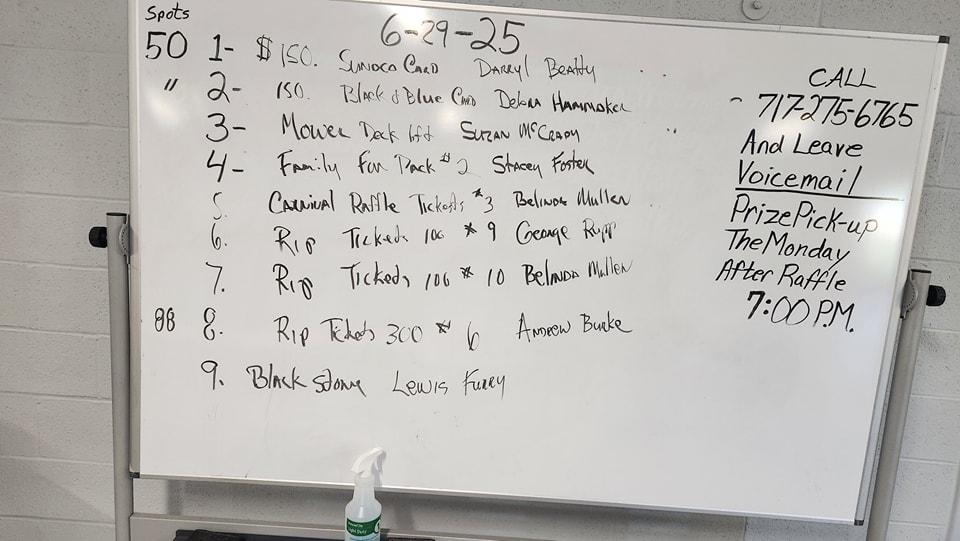 Spots
6-29-25
50 1- $150. Sunoco Card Darryl Beatty
" 2- 150. Black & Blue Card Debra Hammaker
3- Mower Deck lift Suzan McCrady
4- Family Fun Pack #2 Stacey Foster
5. Carnival Raffle Tickets #3 Belinda Mullen
6. Rip Tickets 100 # 9 George Rupp
7. Rip Tickets 100 # 10 Belinda Mullen
88 8. Rip Tickets 300 # 6 Andrew Burke
9. Blackstone Lewis Furry
CALL
717-275-6765
And Leave
Voicemail
Prize Pick-up
The Monday
After Raffle
7:00 P.M.